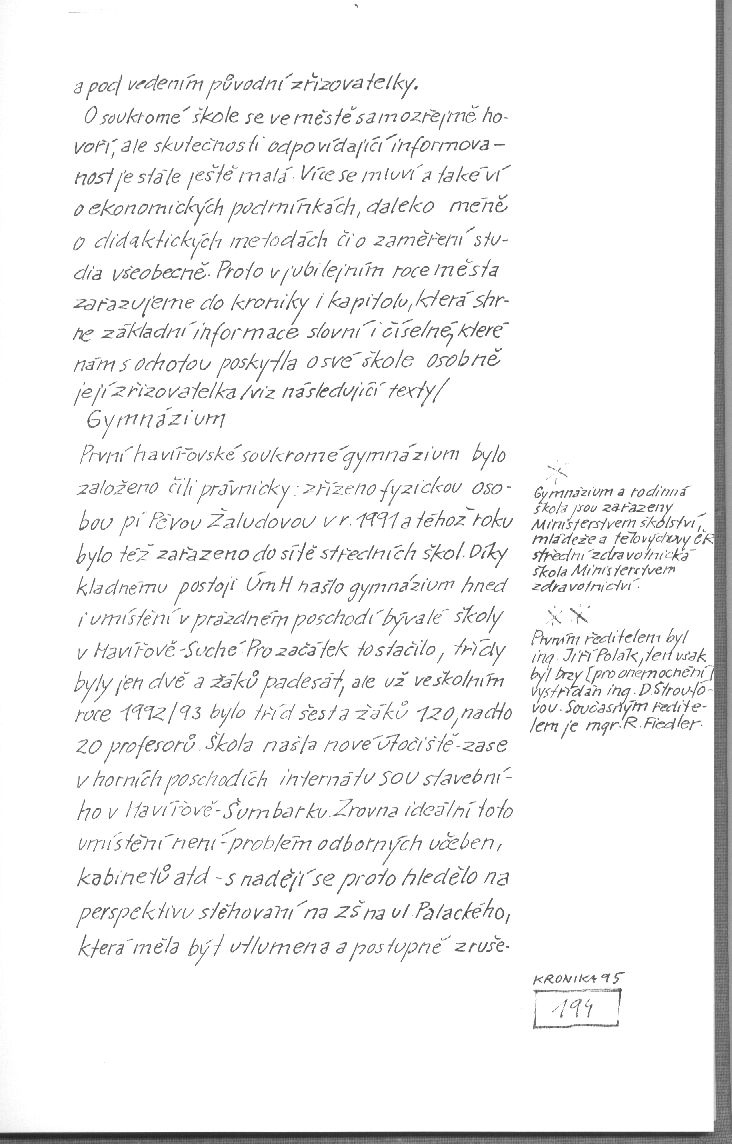 a pod vedením původní zřizovatelky.
O soukromé škole se ve městě samozřejmě ho-
voří, ale skutečnosti odpovídající informova-
nost je stále ještě malá. Více se mluví a také ví
o ekonomických podmínkách, daleko méně
o didaktických metodách či o zaměření stu-
dia všeobecně. Proto v jubilejním roce města
zařazujeme do kroniky i kapitolu, která shr-
ne základní informace slovní i číselné, které
nám s ochotou poskytla o své škole osobně
její zřizovatelka /viz následující texty/
Gymnázium
První havířovské soukromé gymnázium bylo
založeno čili právnicky: zřízeno fyzickou oso-
bou pí Pévou Žaludovou v r. 1991 a téhož roku
bylo též zařazeno do sítě středních škol. Díky
kladnému postoji ÚmH našlo gymnázium hned
i umístění v prázdném poschodí bývalé školy
v Havířově-Suché. Pro začátek to stačilo, třídy
byly jen dvě a žáků padesát, ale už ve školním
roce 1992/93 bylo tříd šest a žáků 120, nadto
20 profesorů. Škola našla nové útočiště - zase
v horních poschodích internátu SOU stavební-
ho v Havířově-Šumbarku. Zrovna ideální toto
umístění není - problém odborných učeben,
kabinetů atd - s nadějí se proto hledělo na
perspektivu stěhovaní na ZŠ na ul. Palackého,
která měla být utlumena a postupně zruše-
Gymnázium a rodinná
škola jsou zařazeny
Ministerstvem školství,
mládeže a tělovýchovy ČR
střední zdravotnická
škola Ministerstvem
zdravotnictví.
Prvním ředitelem byl
ing. Jiří Polák, ten však
byl brzy [pro onemocnění]
vystřídán ing. D. Štroufo-
vou. Současným ředite-
lem je mgr. R. Fiedler.
KRONIKA 95
194